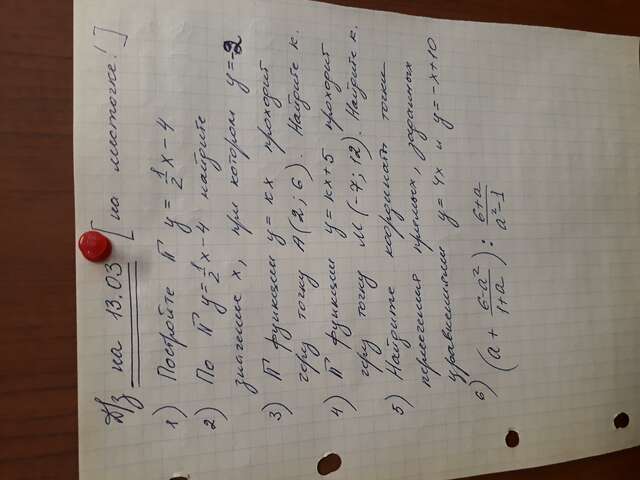 Д/з на 13.03 [на листочке!]
1) Постройте Г y = 1/2 x - 4
2) По Г y = 1/2 x - 4 найдите
значение x, при котором y = -2
3) Г функции y = kx проходит
через точку A (2; 6). Найдите k.
4) Г функции y = kx + 5 проходит
через точку M (-7; 12). Найдите k.
5) Найдите координаты точки
пересечения прямых, заданных
уравнениями y = 4x и y = -x + 10
6) (a + (6-a²)/(1+a)) : (6+a)/(a²-1)